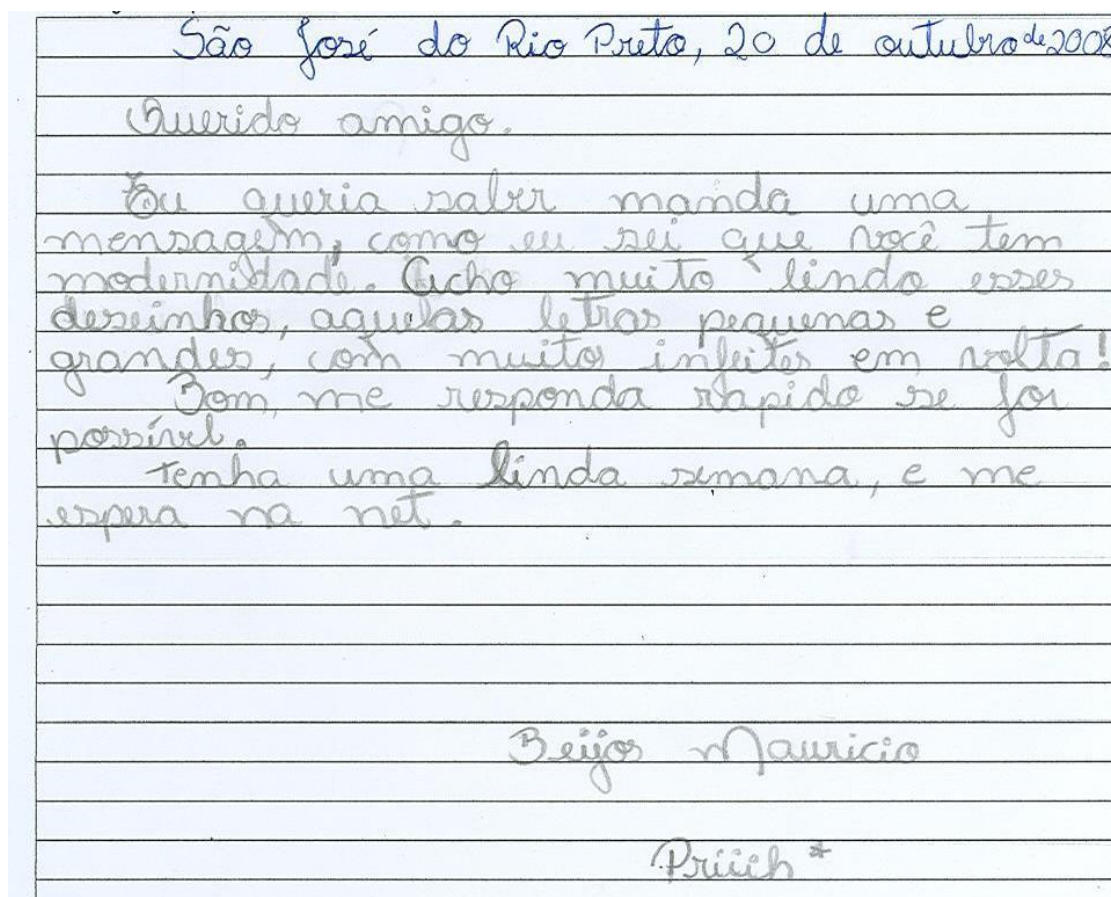 São José do Rio Preto, 20 de outubro de 2008
Querido amigo.
Eu queria saber manda uma
mensagem, como eu sei que você tem
modernidade. Acho muito lindo esses
deseinhos, aquelas letras pequenas e
grandes, com muitos infeites em volta!
Bom, me responda rápido se for
possível.
Tenha uma linda semana, e me
espera na net.
Beijos Mauricio
Priiih*